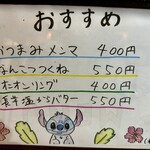 おすすめ
おつまみメンマ 400円
なんこつつくね 550円
オニオンリング 400円
バター 550円